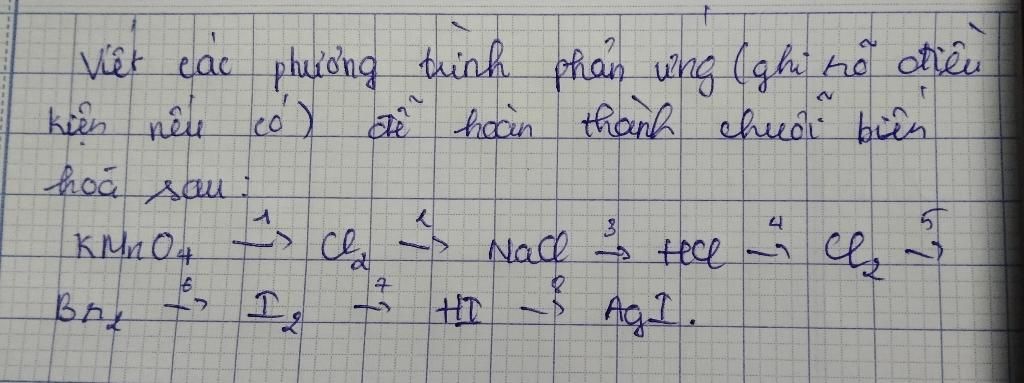 Viết các phương trình phản ứng (ghi rõ điều
kiện nếu có) để hoàn thành chuỗi biến
hoá sau:
KMnO₄ —1→ Cl₂ —2→ NaCl —3→ HCl —4→ Cl₂ —5→
Br₂ —6→ I₂ —7→ HI —8→ AgI.